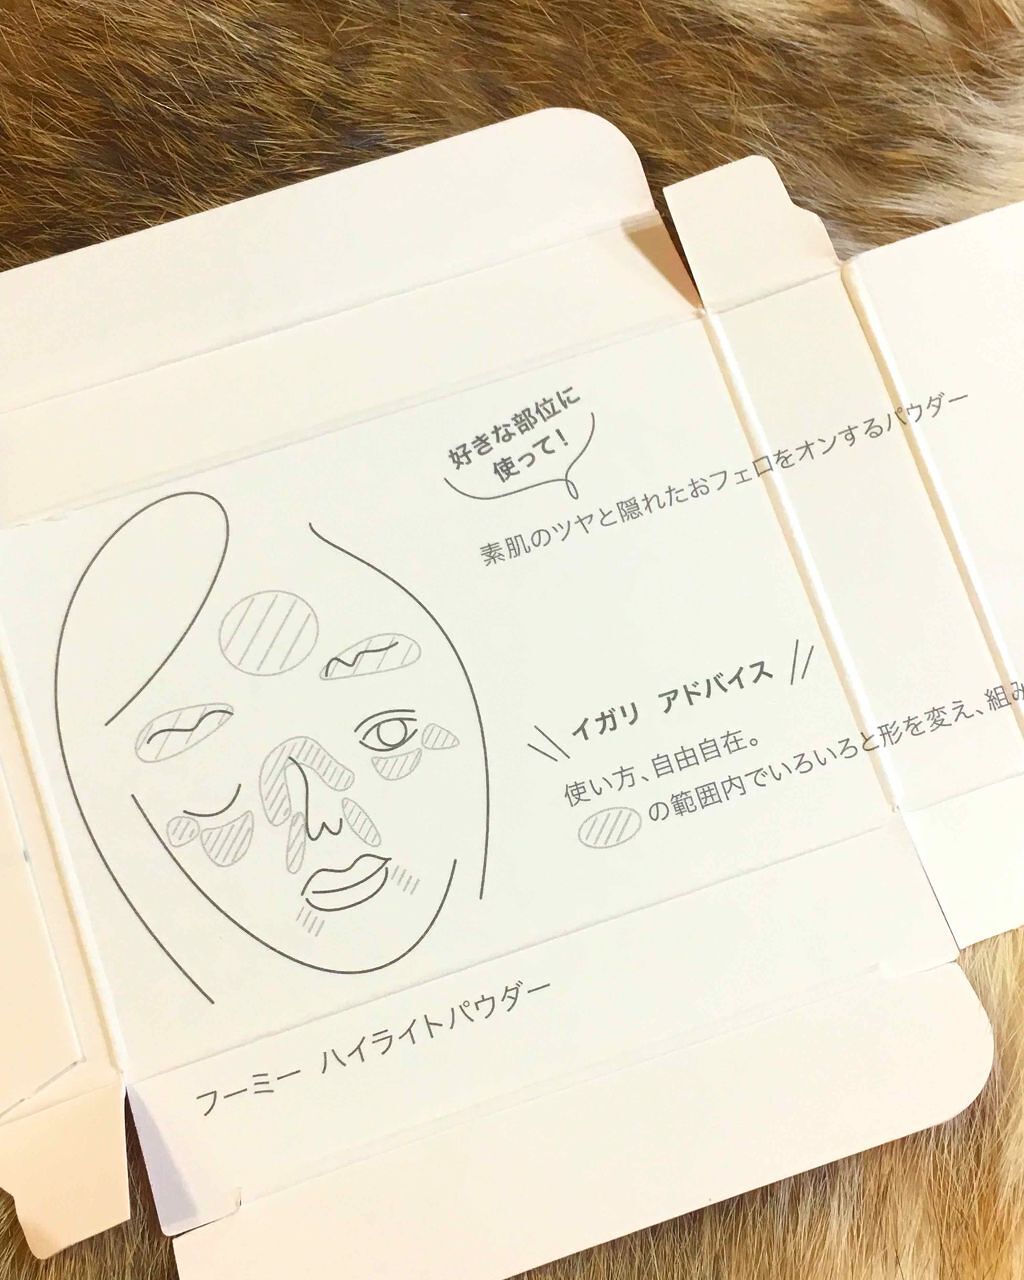 好きな部位に
使って!
素肌のツヤと隠れたおフェロをオンするパウダー
イガリ アドバイス
使い方、自由自在。
の範囲内でいろいろと形を変え、組み
フーミー ハイライトパウダー